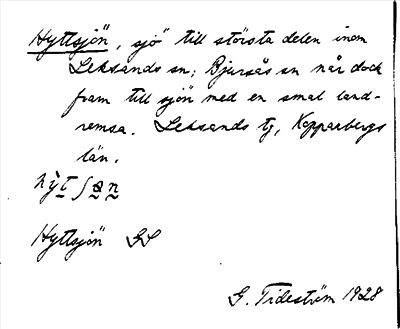 Hyttsjön, sjö till största delen inom
Leksands sn; Bjursås sn når dock
fram till sjön med en smal land-
remsa. Leksands tg, Kopparbergs
län.
Hyttsjön GS
G. Tideström 1928